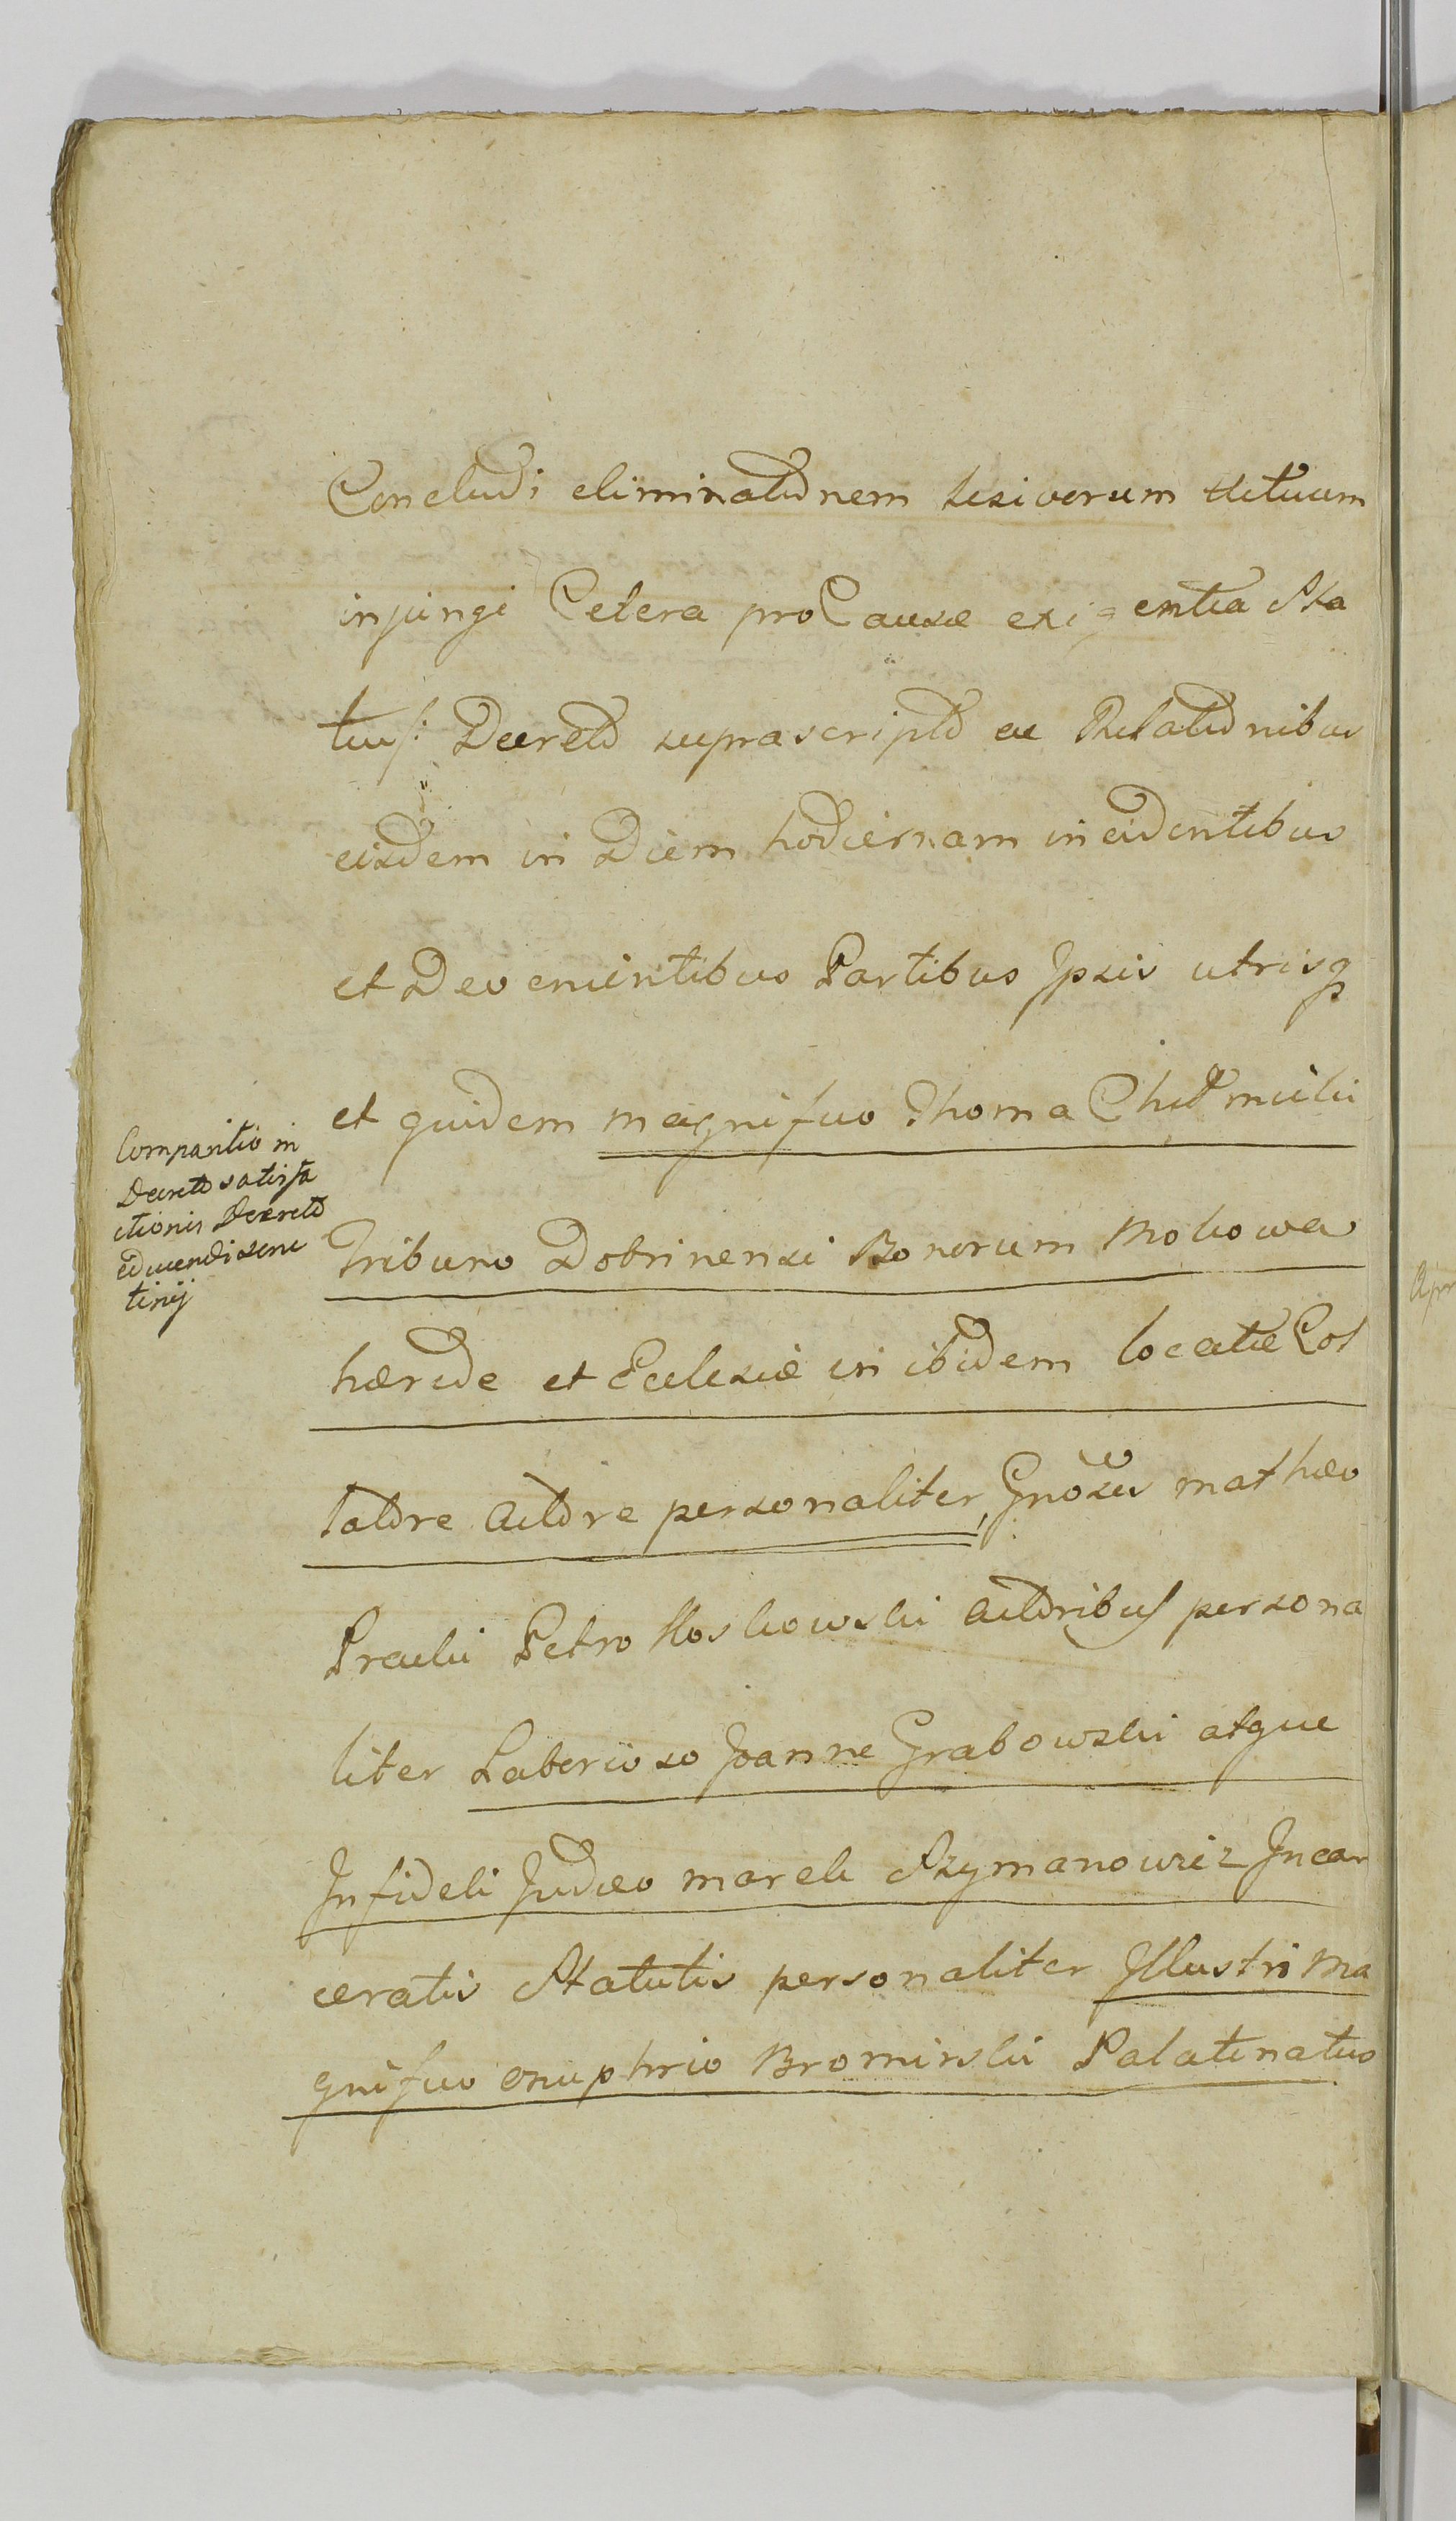 Concludi eliminationem lesivorum Actuum
injungi Cetera pro Causæ exigentia Sta
tui/: Decreto suprascripto ac Relationibus
eisdem in Diem hodiernam incidentibus
et Devenientibus Partibus Ipsis utrisq
et quidem magnifico Thoma Chełmicki
Tribuno Dobrinensi Bonorum Mokowa
hærede et Ecclesiæ in ibidem locatæ Col
latore Actore personaliter, Gnosis mathæo
Petro Actoribus persona
liter Laborioso Joanne Grabowski atque
Infideli Judæo marek Szymanowicz Incar
ceratis Statutis personaliter Illustri Ma
gnifico onuphrio Bromirski Palatinatus
Comparitio in
Decreto satisfa
ctionis Decreto
educendi scru
tinij